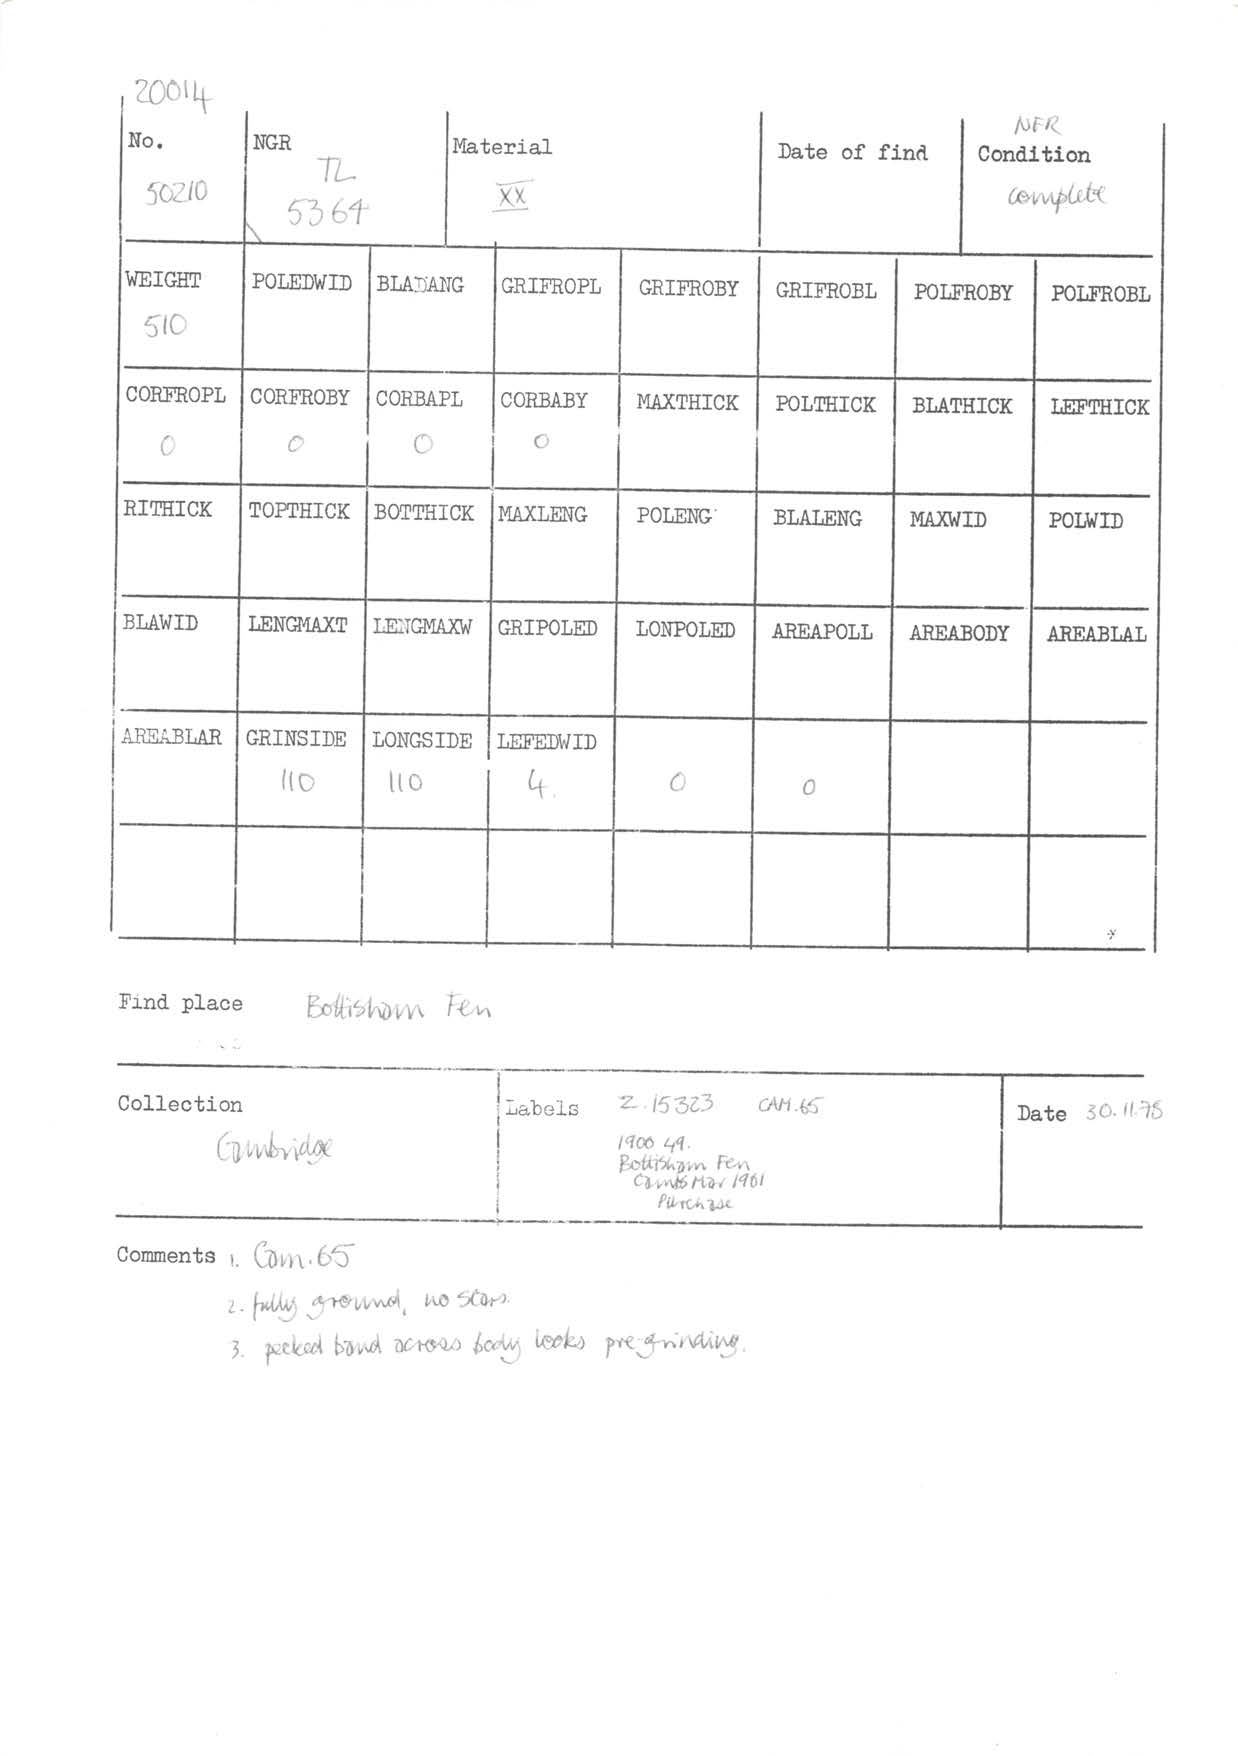 20014
No. NGR Material Date of find NFR Condition
50210 TL 5364 XX complete
WEIGHT POLEDWID BLADANG GRIFROPL GRIFROBY GRIFROBL POLFROBY POLFROBL
510
CORFROPL CORFROBY CORBAPL CORBABY MAXTHICK POLTHICK BLATHICK LEFTHICK
0 0 0 0
RITHICK TOPTHICK BOTTHICK MAXLENG POLENG BLALENG MAXWID POLWID
BLAWID LENGMAXT LENGMAXW GRIPOLED LONPOLED AREAPOLL AREABODY AREABLAL
AREABLAR GRINSIDE LONGSIDE LEFEDWID
110 110 4. 0 0
Find place Bottisham Fen
Collection Labels Z.15323 CAM.65 Date 30.11.75
Cambridge
1900 49.
Bottisham Fen
Cambs Mar 1901
Purchase
Comments 1. Cam.65
2. fully ground, no scars.
3. pecked band across body looks pre-grinding.